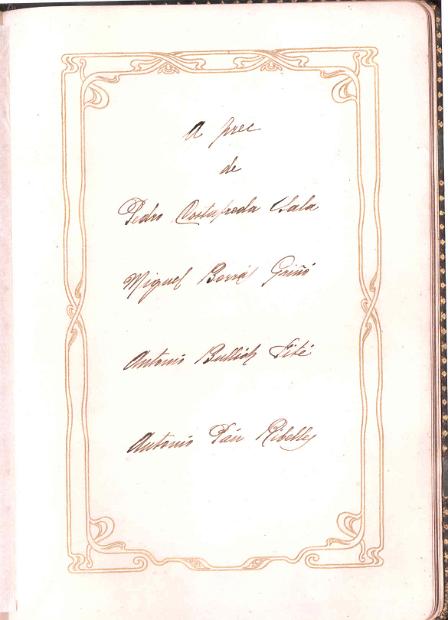 A prec
de
Pedro Costafreda Sala
Miquel Borrás Guiñó
Antonio Bullich Fité
Antonio Ribelles